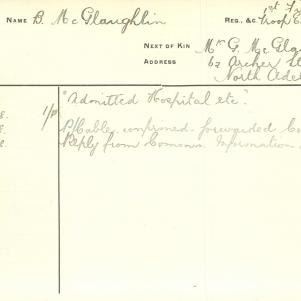 NAME B. McGlaughlin
REG. & C
Troop
NEXT OF KIN
ADDRESS
Mr G. McGlau
62 Archer St
North Adel
"Admitted Hospital etc".
P/Cable confirmed. forwarded
Reply from Comown. Information